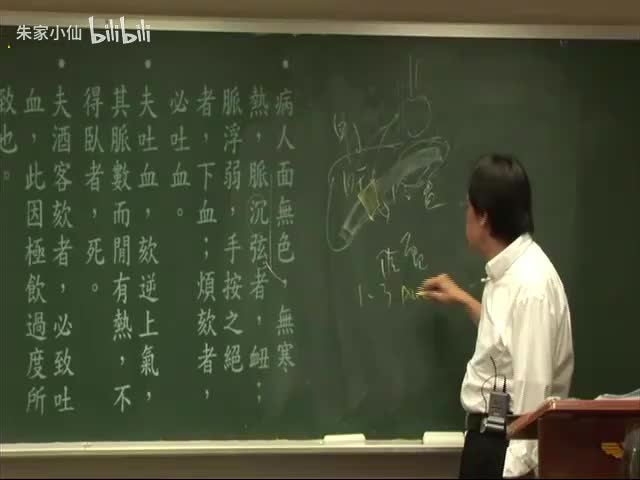 朱家小仙 bilibili
病人面無色，無寒
熱，脈沉弦者，衄；
脈浮弱，手按之絕
者，下血；煩欬者，
必吐血。
夫吐血，欬逆上氣，
其脈數而間有熱，不
得臥者，死。
夫酒客欬者，必致吐
血，此因極飲過度所
致也。